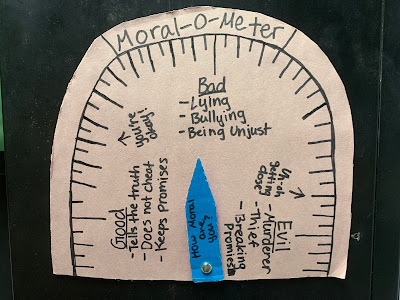 Moral-O-Meter
Bad
- Lying
- Bullying
- Being Unjust
you're
okay!
Good
- Tells the truth
- Does not cheat
- Keeps Promises
How Moral
are
you?
Uh-oh
getting
close
Evil
- Murderer
- Thief
- Breaking
Promises